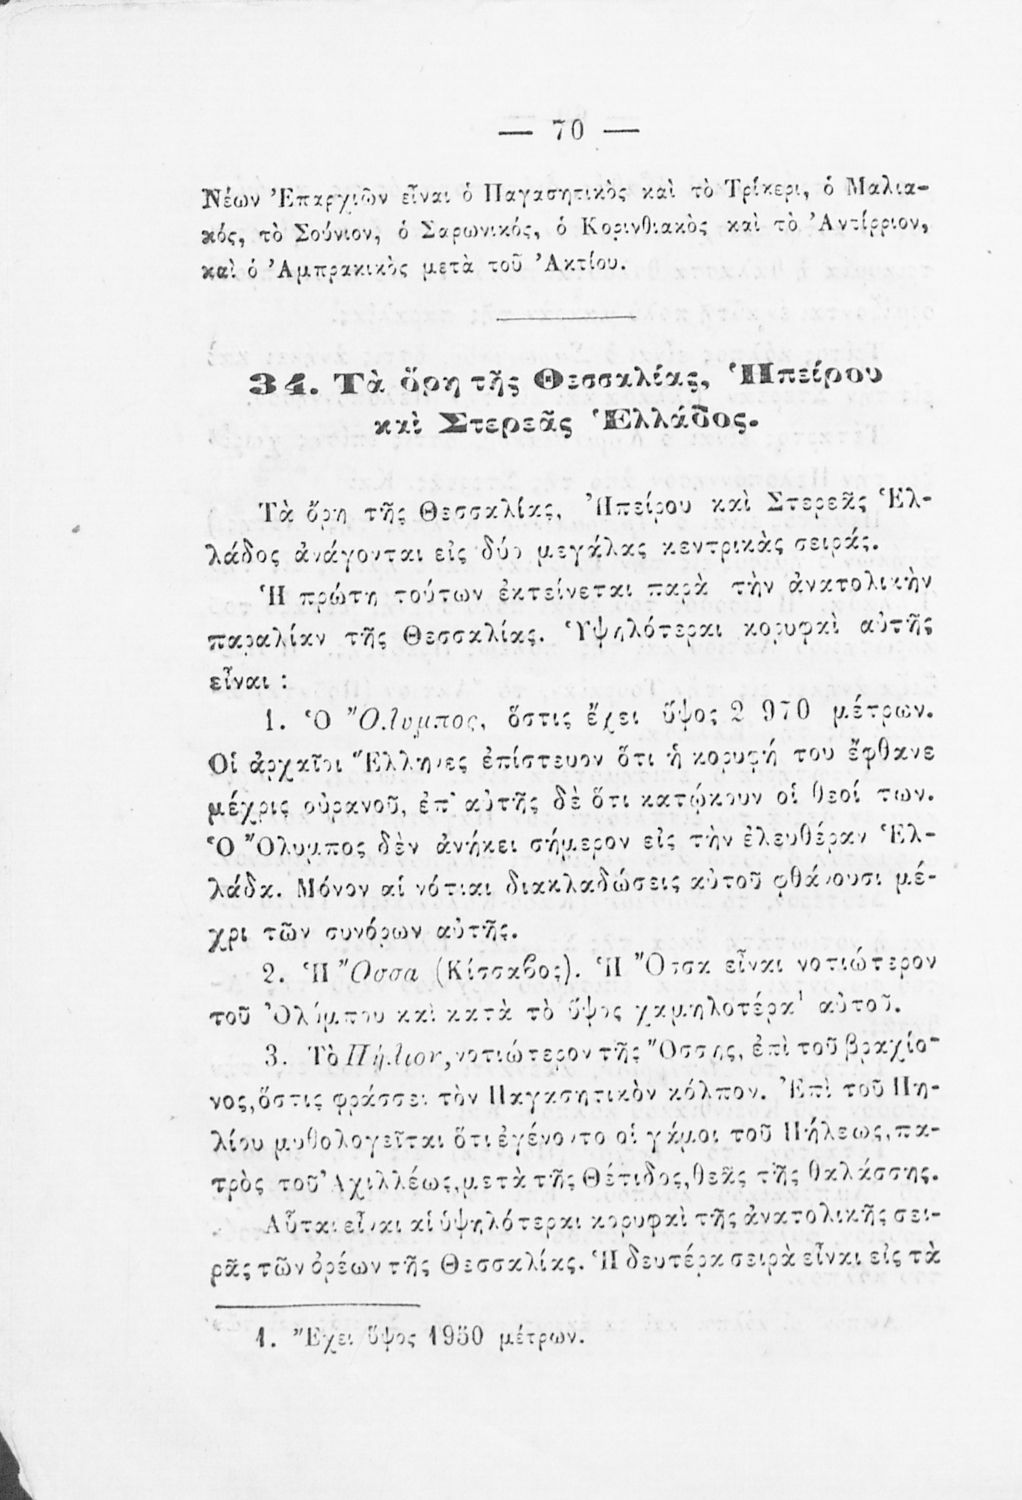 — 70 —
Νέων Ἐπαρχιῶν εἶναι ὁ Παγασητικὸς καὶ τὸ Τρίκερι, ὁ Μαλια-
κός, τὸ Σούνιον, ὁ Σαρωνικός, ὁ Κορινθιακὸς καὶ τὸ Ἀντίρριον,
καὶ ὁ Ἀμπρακικὸς μετὰ τοῦ Ἀκτίου.
34. Τὰ ὄρη τῆς Θεσσαλίας, Ἠπείρου
καὶ Στερεᾶς Ἑλλάδος.
Τὰ ὄρη τῆς Θεσσαλίας, Ἠπείρου καὶ Στερεᾶς Ἑλ-
λάδος ἀνάγονται εἰς δύο μεγάλας κεντρικὰς σειράς.
Ἡ πρώτη τούτων ἐκτείνεται παρὰ τὴν ἀνατολικὴν
παραλίαν τῆς Θεσσαλίας. Ὑψηλότεραι κορυφαὶ αὐτῆς
εἶναι :
1. Ὁ Ὄλυμπος, ὅστις ἔχει ὕψος 2 970 μέτρων.
Οἱ ἀρχαῖοι Ἕλληνες ἐπίστευον ὅτι ἡ κορυφή του ἔφθανε
μέχρις οὐρανοῦ, ἐπ' αὐτῆς δὲ ὅτι κατῴκουν οἱ θεοί των.
Ὁ Ὄλυμπος δὲν ἀνήκει σήμερον εἰς τὴν ἐλευθέραν Ἑλ-
λάδα. Μόνον αἱ νότιαι διακλαδώσεις αὐτοῦ φθάνουσι μέ-
χρι τῶν συνόρων αὐτῆς.
2. Ἡ Ὄσσα (Κίσσαβος). Ἡ Ὄσσα εἶναι νοτιώτερον
τοῦ Ὀλύμπου καὶ κατὰ τὸ ὕψος χαμηλοτέρα¹ αὐτοῦ.
3. Τὸ Πήλιον, νοτιώτερον τῆς Ὄσσης, ἐπὶ τοῦ βραχίο-
νος, ὅστις φράσσει τὸν Παγασητικὸν κόλπον. Ἐπὶ τοῦ Πη-
λίου μυθολογεῖται ὅτι ἐγένοντο οἱ γάμοι τοῦ Πήλεως, πα-
τρὸς τοῦ Ἀχιλλέως, μετὰ τῆς Θέτιδος, θεᾶς τῆς θαλάσσης.
Αὗται εἶναι αἱ ὑψηλότεραι κορυφαὶ τῆς ἀνατολικῆς σει-
ρᾶς τῶν ὀρέων τῆς Θεσσαλίας. Ἡ δευτέρα σειρὰ εἶναι εἰς τὰ
1. Ἔχει ὕψος 1950 μέτρων.